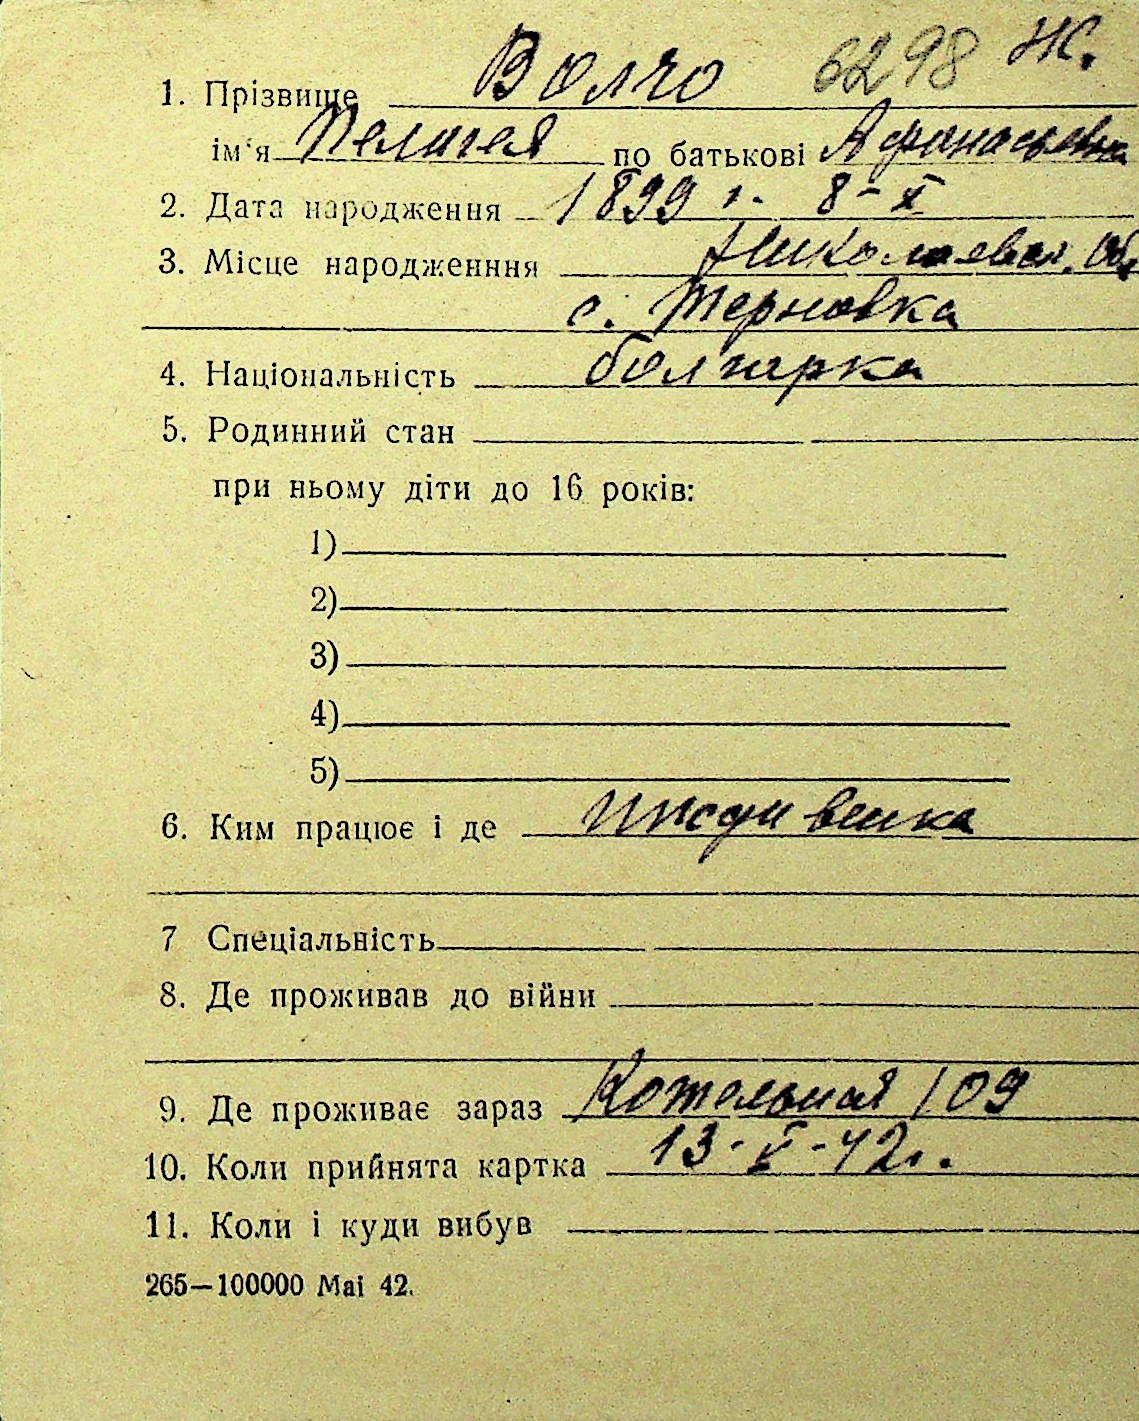 1. Прізвище Волчо 6298 Ж.
ім'я Пелагея по батькові Афанасьевна
2. Дата народження 1899 г. 8-X
3. Місце народженння Николаевская Обл
с. Терновка
4. Національність болгарка
5. Родинний стан
при ньому діти до 16 років:
1)
2)
3)
4)
5)
6. Ким працює і де иждивенка
7 Спеціальність
8. Де проживав до війни
9. Де проживає зараз Котельная 109
10. Коли прийнята картка 13-V-42г.
11. Коли і куди вибув
265—100000 Mai 42.